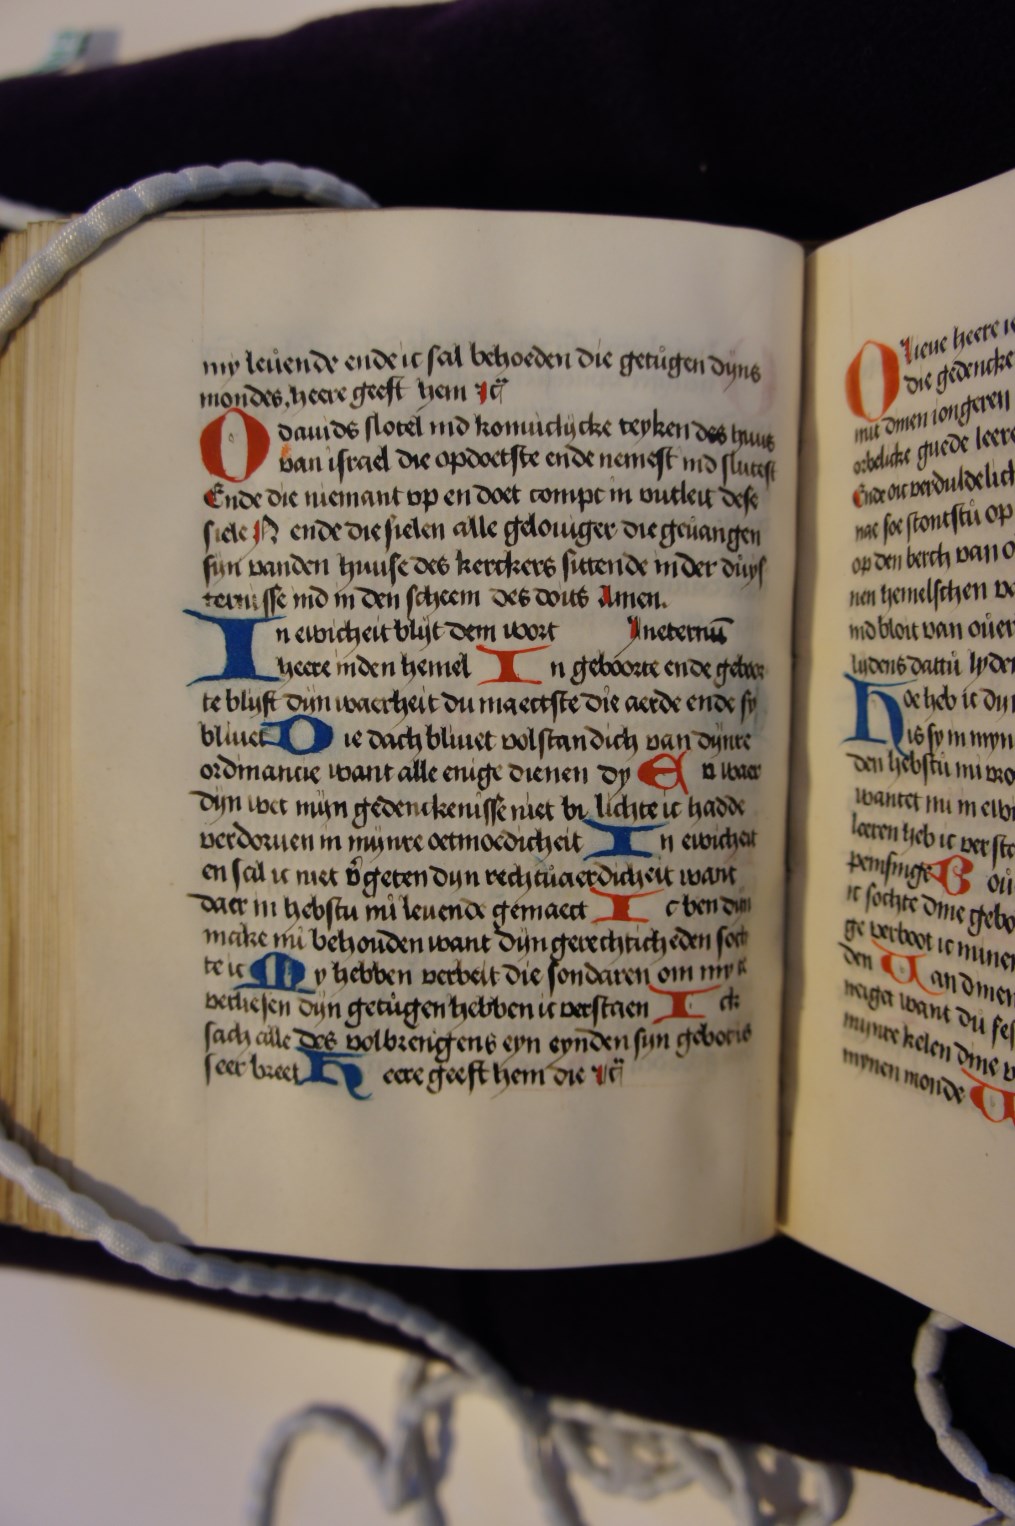 my leuende ende ic sal behoeden die getugen dijns
mondes, heere geeft hem
O dauids slotel ind koninclijcke teyken des huus
van israel die opdoetste ende nemest ind slutest
Ende die niemant op en doet compt in vutleit dese
siele N ende die sielen alle gelouiger die geuangen
sijn vanden huuse des kerckers sittende in der duys
ternisse ind in den scheem des doits Amen.
In ewicheit blijt dem wort In eternu
heere inden hemel In geboorte ende geboor
te blijft dijn waerheit du maectste die aerde ende sy
bliuet Die dach bliuet volstandich van dijnre
ordinancie want alle enige dienen dy En waer
dijn wet mijn gedenckenisse niet bi lichte ic hadde
verdoruen in mijnre oetmoedicheit In ewicheit
en sal ic niet vergeten dijn rechtuaerdicheit want
daer in hebstu mi leuende gemaect Ic ben dijn
make mi behouden want dijn gerechticheden soch
te ic My hebben verbeit die sondaren om my te
verliesen dijn getugen hebben ic verstaen Ick
sach alle des volbrengens eyn eynden sijn gebot is
seer breet Heere geeft hem die
O lieue heere
die gedencke
mit dinen iongeren
orbelicke guede leere
Ende oic verduldelich
nae soe stontstu op
op den berch van
nen hemelschen
ind bloit van
lijdens dattu lyde
Hoe heb ic dijn
is sy in mijn
den hebstu mi
wantet mi in
leeren heb ic verst
peinsinge
ic sochte dine gebo
ge verboot ic minen
den Van dinen
neiget want du
mijnre kelen dine
mynen monde